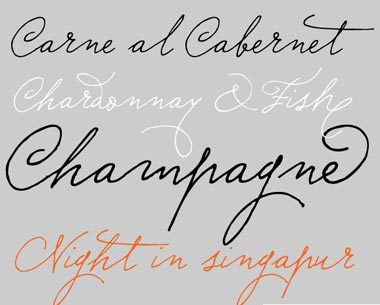 Carne al Cabernet
Chardonnay & Fish
Champagne
Night in singapur